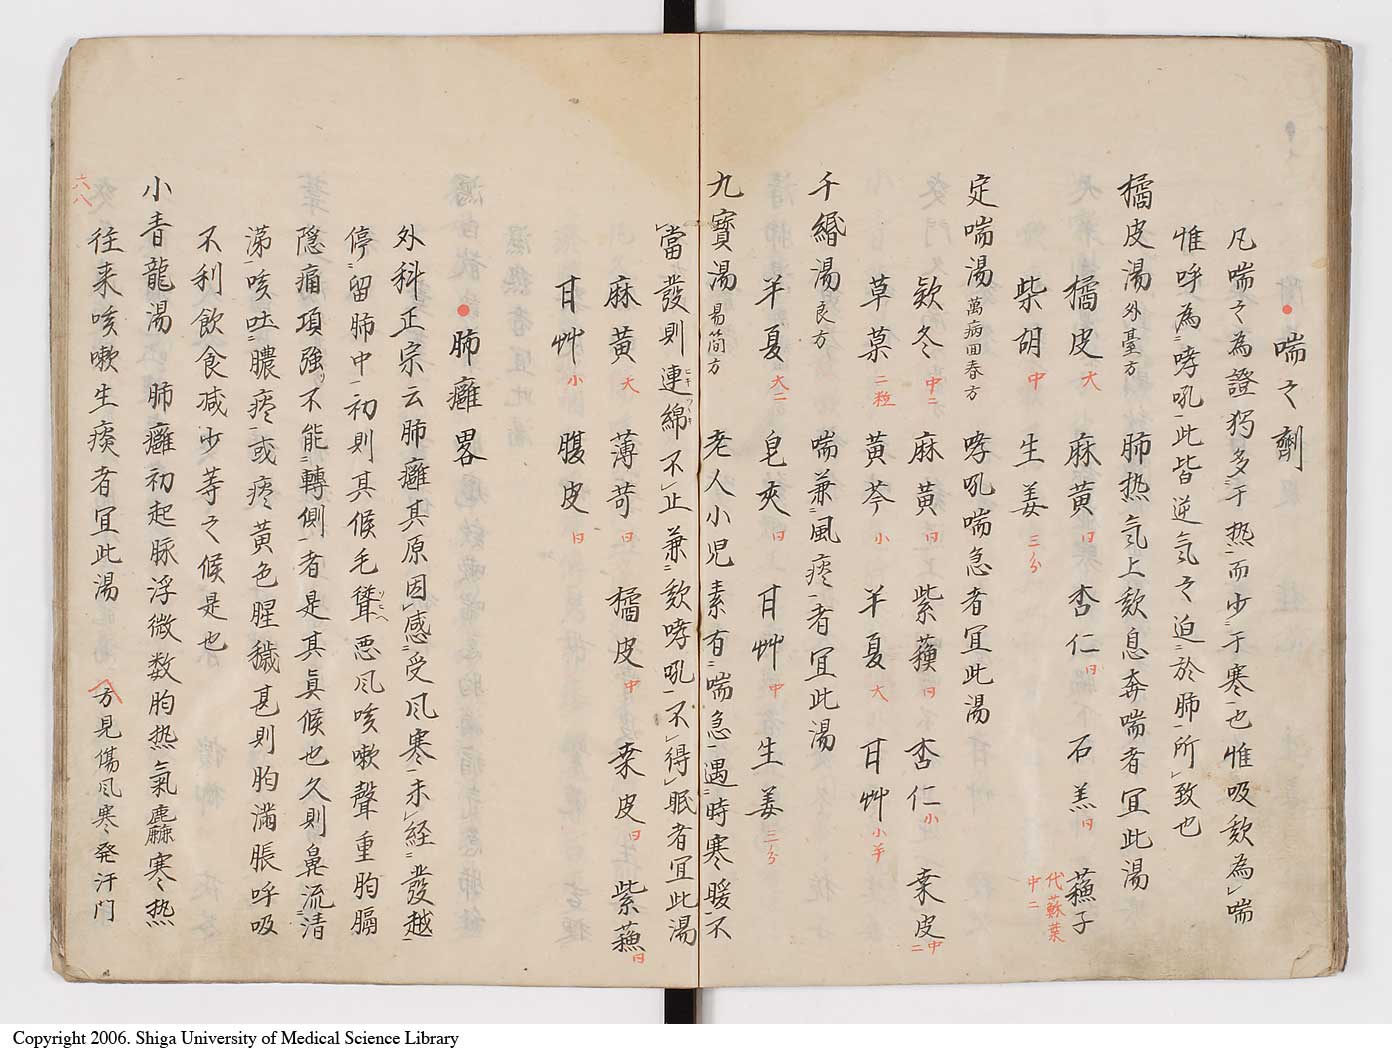 喘之劑
凡喘之為證猶多于热而少于寒也惟吸欬為喘
惟呼為哮吼此皆逆氣之迫於肺所致也
橘皮湯 外臺方 肺热氣上欬息奔喘者宜此湯
橘皮 大 麻黄 曰 杏仁 曰 石羔 曰 蘓子 代蘇葉 中二
柴胡 中 生姜 三分
定喘湯 萬病回春方 哮吼喘急者宜此湯
欵冬 中二 麻黄 曰 紫蘓 曰 杏仁 小 桒皮 中二
草菓 二粒 黄芩 小 半夏 大 甘艸 小半
千緡湯 良方 喘兼風痰者宜此湯
半夏 大二 皂夾 曰 甘艸 中 生姜 三分
九寳湯 易簡方 老人小児素有喘急遇時寒暖不
當發則連綿不止兼欬哮吼不得眠者宜此湯
麻黄 大 薄苛 曰 橘皮 中 桒皮 曰 紫蘓 曰
甘艸 小 腹皮 曰
肺癰畧
外科正宗云肺癰其原因感受风寒未經發越
停留肺中初則其候毛聳悪风咳嗽聲重胸膈
隠痛項強不能轉側者是其眞候也久則鼻流清
涕咳吐膿痰或痰黄色腥穢甚則胸滿脹呼吸
不利飲食减少等之候是也
小青龍湯 肺癰初起脉浮微数胸热氣麤寒热
往来咳嗽生痰者宜此湯 方見傷风寒発汗门
六八
Copyright 2006. Shiga University of Medical Science Library